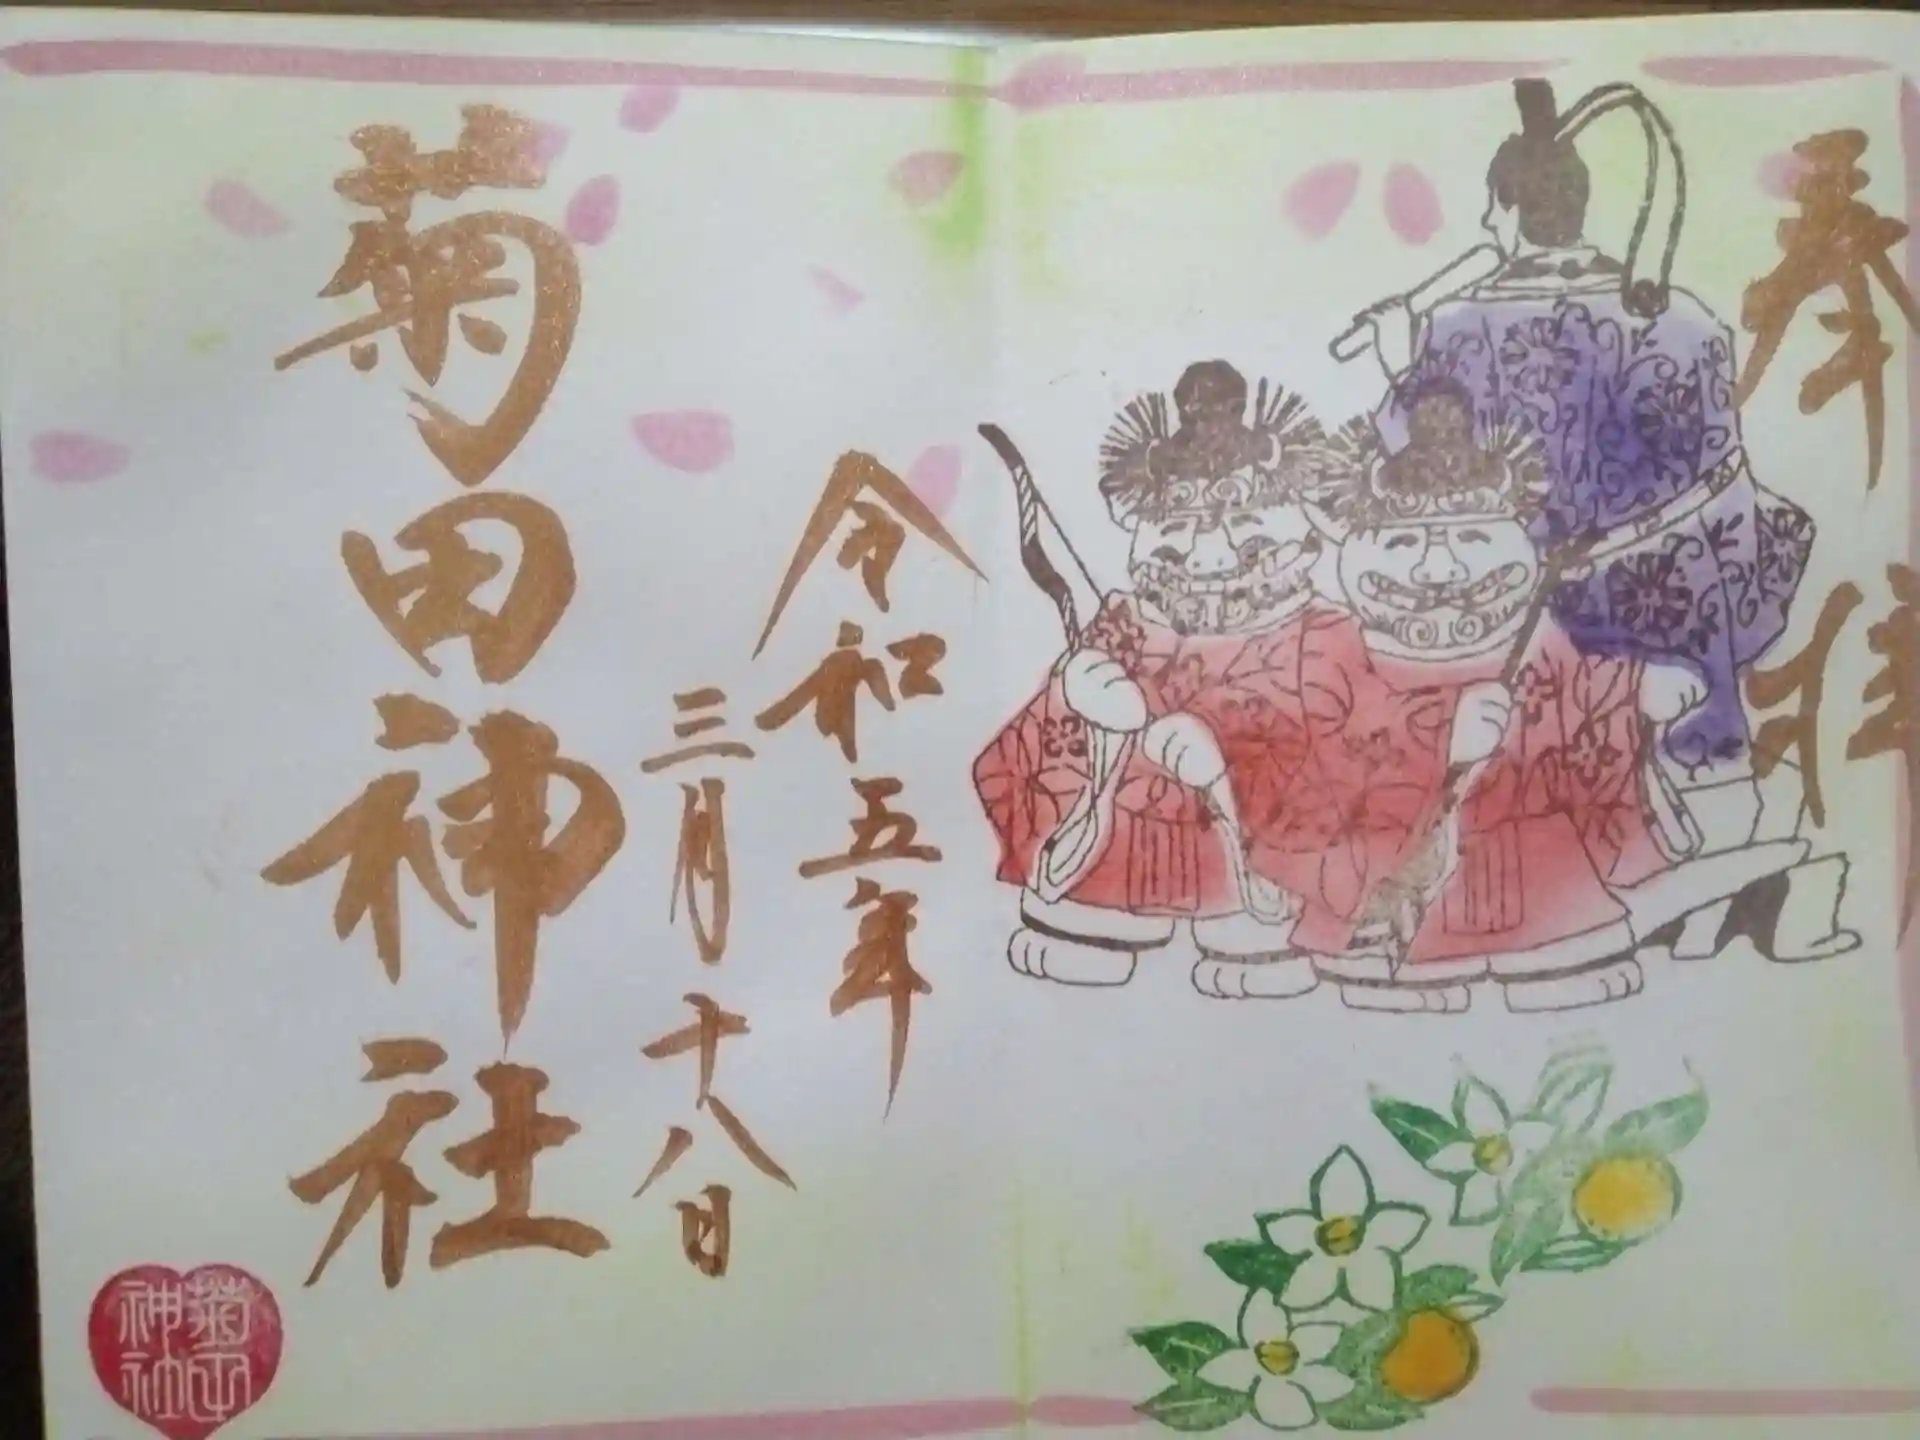 奉拝
令和五年
三月十八日
菊田神社
菊田
神社